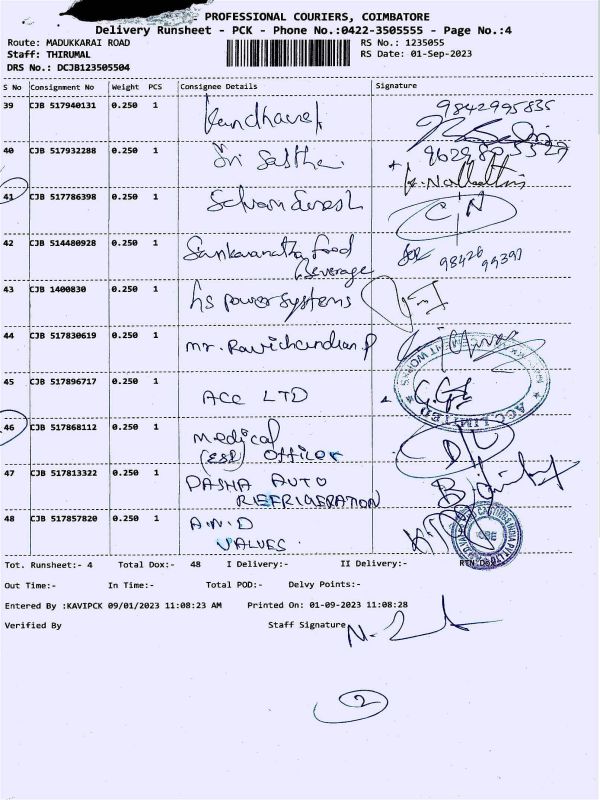 PROFESSIONAL COURIERS, COIMBATORE
Delivery Runsheet - PCK - Phone No.:0422-3505555 - Page No.:4
Route: MADUKKARAI ROAD RS No.: 1235055
Staff: THIRUMAL RS Date: 01-Sep-2023
DRS No.: DCJB123505504
S No Consignment No Weight PCS Consignee Details Signature
39 CJB 517940131 0.250 1 9842995835
40 CJB 517932288 0.250 1 Sri Sastha.
41 CJB 517786398 0.250 1 Selvam Suresh
42 CJB 514480928 0.250 1 Sankaranatha food 98428 99397
Beverage
43 CJB 1400830 0.250 1 hs power systems
44 CJB 517830619 0.250 1 mr. Ravichandran P
45 CJB 517896717 0.250 1 ACC LTD
ACC LIMITED
46 CJB 517868112 0.250 1 medical
(ESI) officer
47 CJB 517813322 0.250 1 PASHA AUTO
REFRIGERATION
48 CJB 517857820 0.250 1 A.N.D
VALVES.
Tot. Runsheet:- 4 Total Dox:- 48 I Delivery:- II Delivery:- RTN Dox:-
Out Time:- In Time:- Total POD:- Delvy Points:-
Entered By :KAVIPCK 09/01/2023 11:08:23 AM Printed On: 01-09-2023 11:08:28
Verified By Staff Signature
2